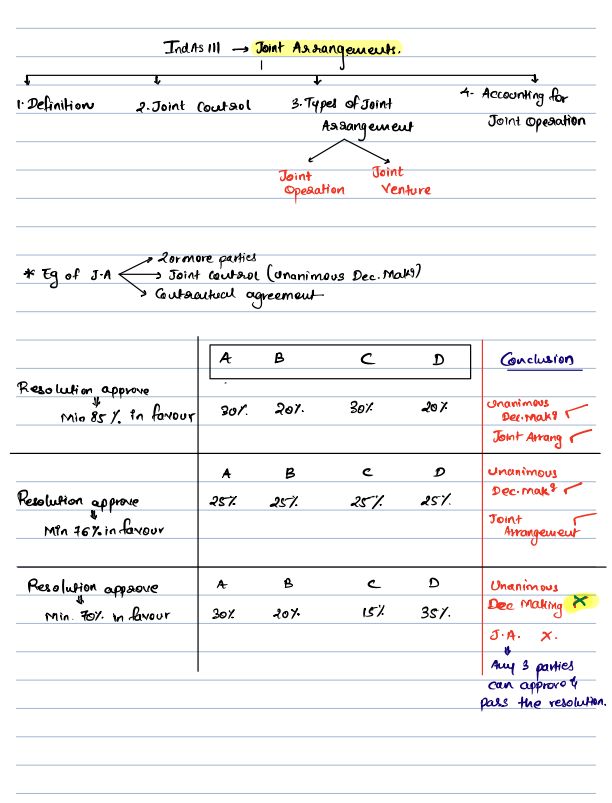 IndAs 111 → Joint Arrangements.
1. Definition
2. Joint Control
3. Types of Joint
Arrangement
4. Accounting for
Joint Operation
Joint
Operation
Joint
Venture
* Eg of J.A
2 or more parties
Joint Control (Unanimous Dec. Makg)
Contractual agreement
A B C D Conclusion
Resolution approve
Min 85% in favour
30% 20% 30% 20%
Unanimous
Dec. Makg ✓
Joint Arrang ✓
A B C D
Resolution approve
Min 76% in favour
25% 25% 25% 25%
Unanimous
Dec. Makg ✓
Joint
Arrangement ✓
A B C D
Resolution approve
Min. 70% in favour
30% 20% 15% 35%
Unanimous
Dec Making ✗
J.A. ✗.
Any 3 parties
can approve &
pass the resolution.